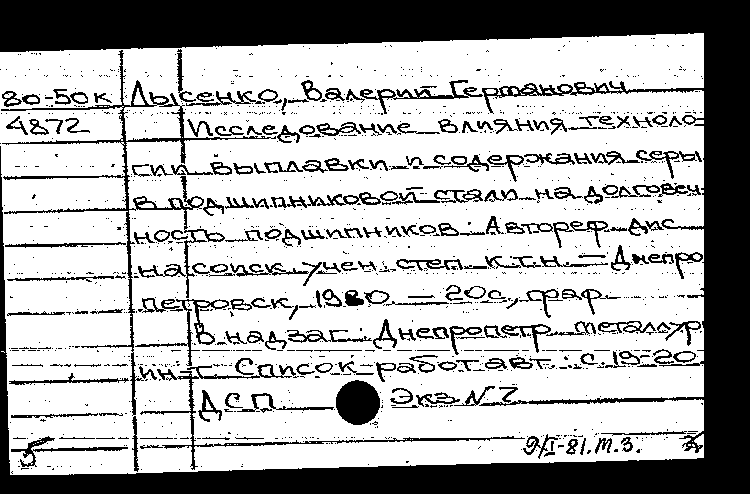 80-50к Лысенко, Валерий Германович
4872 Исследование влияния техноло-
гии выплавки и содержания серы
в подшипниковой стали на долговеч-
ность подшипников: Автореф. дис.
на соиск. учен. степ. к.т.н. — Днепро
петровск, 1980. — 20с., граф.
В надзаг.: Днепропетр. металлург.
ин-т. Список работ авт.: с. 19-20.
ДСП Экз №7
5 9/I-81. М.З.